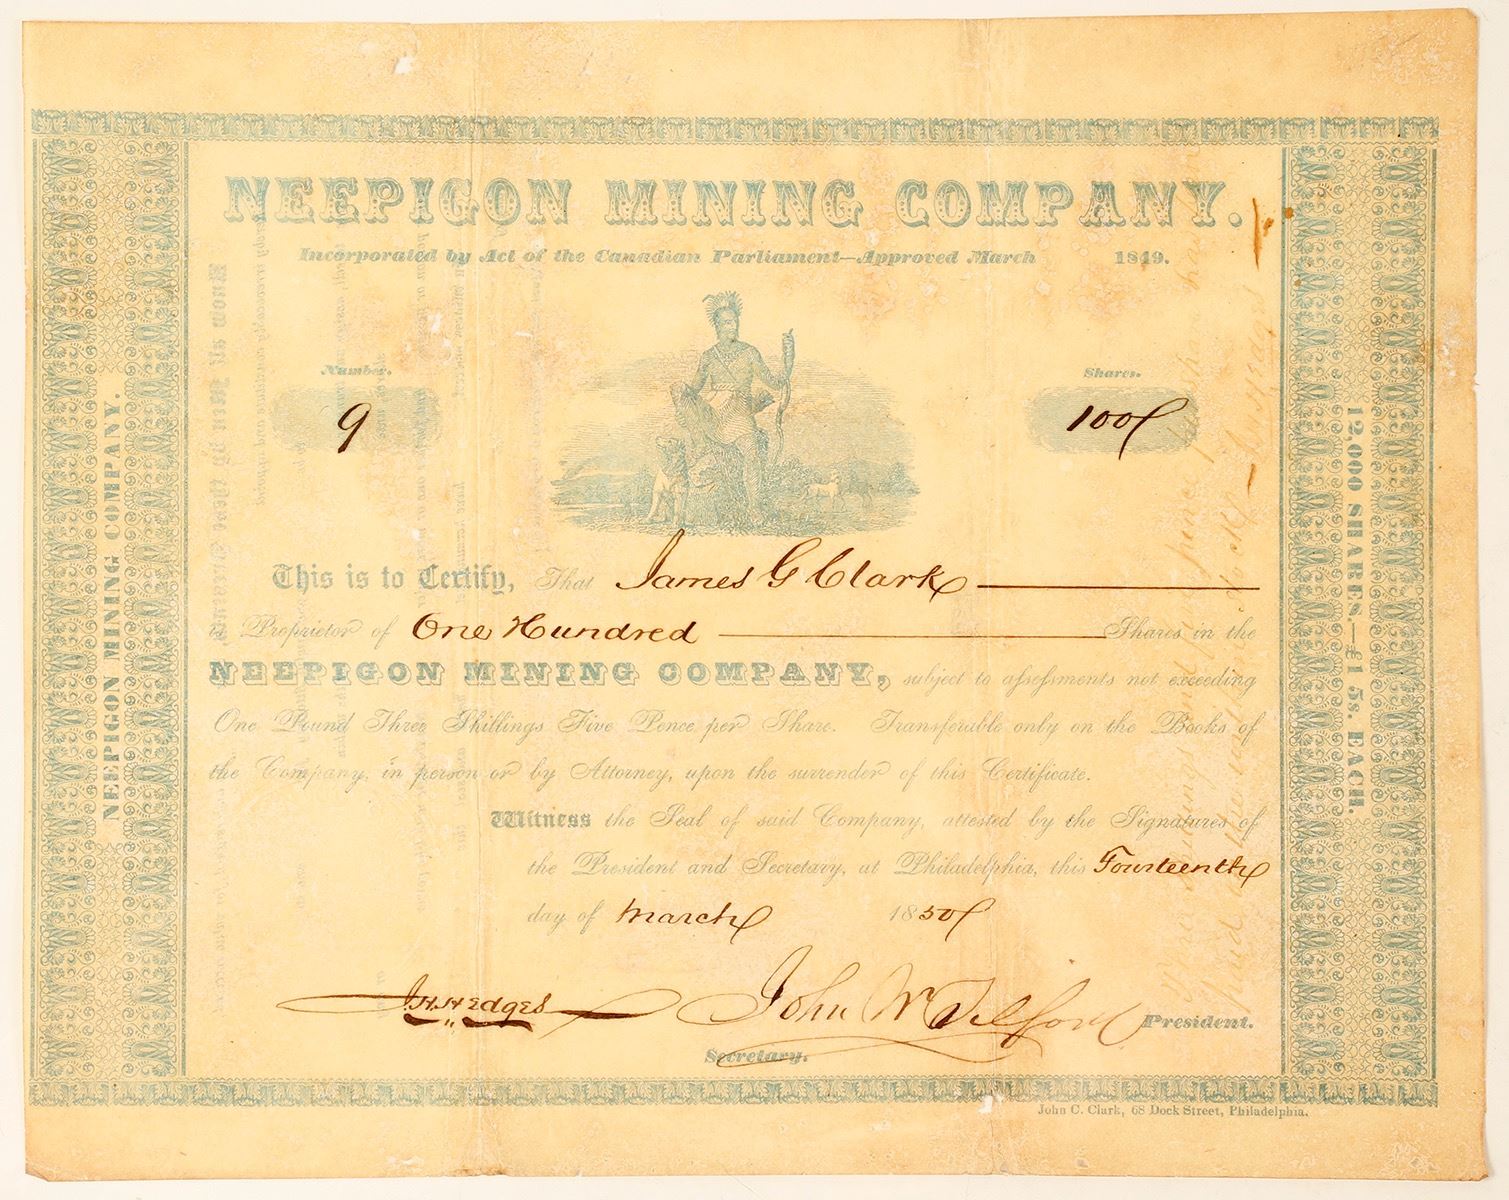 NEEPIGON MINING COMPANY.
Incorporated by Act of the Canadian Parliament—Approved March 1849.
Number. Shares.
9 100
This is to Certify, That James G Clark
is Proprietor of One Hundred Shares in the
NEEPIGON MINING COMPANY, subject to assessments not exceeding
One Pound Three Shillings Five Pence per Share. Transferable only on the Books of
the Company, in person or by Attorney, upon the surrender of this Certificate.
Witness the Seal of said Company, attested by the Signatures of
the President and Secretary, at Philadelphia, this Fourteenth
day of March 1850
J.H. Hedges John W Tilford President.
Secretary.
NEEPIGON MINING COMPANY.
12,000 SHARES.—£1 5s. EACH.
John C. Clark, 68 Dock Street, Philadelphia.